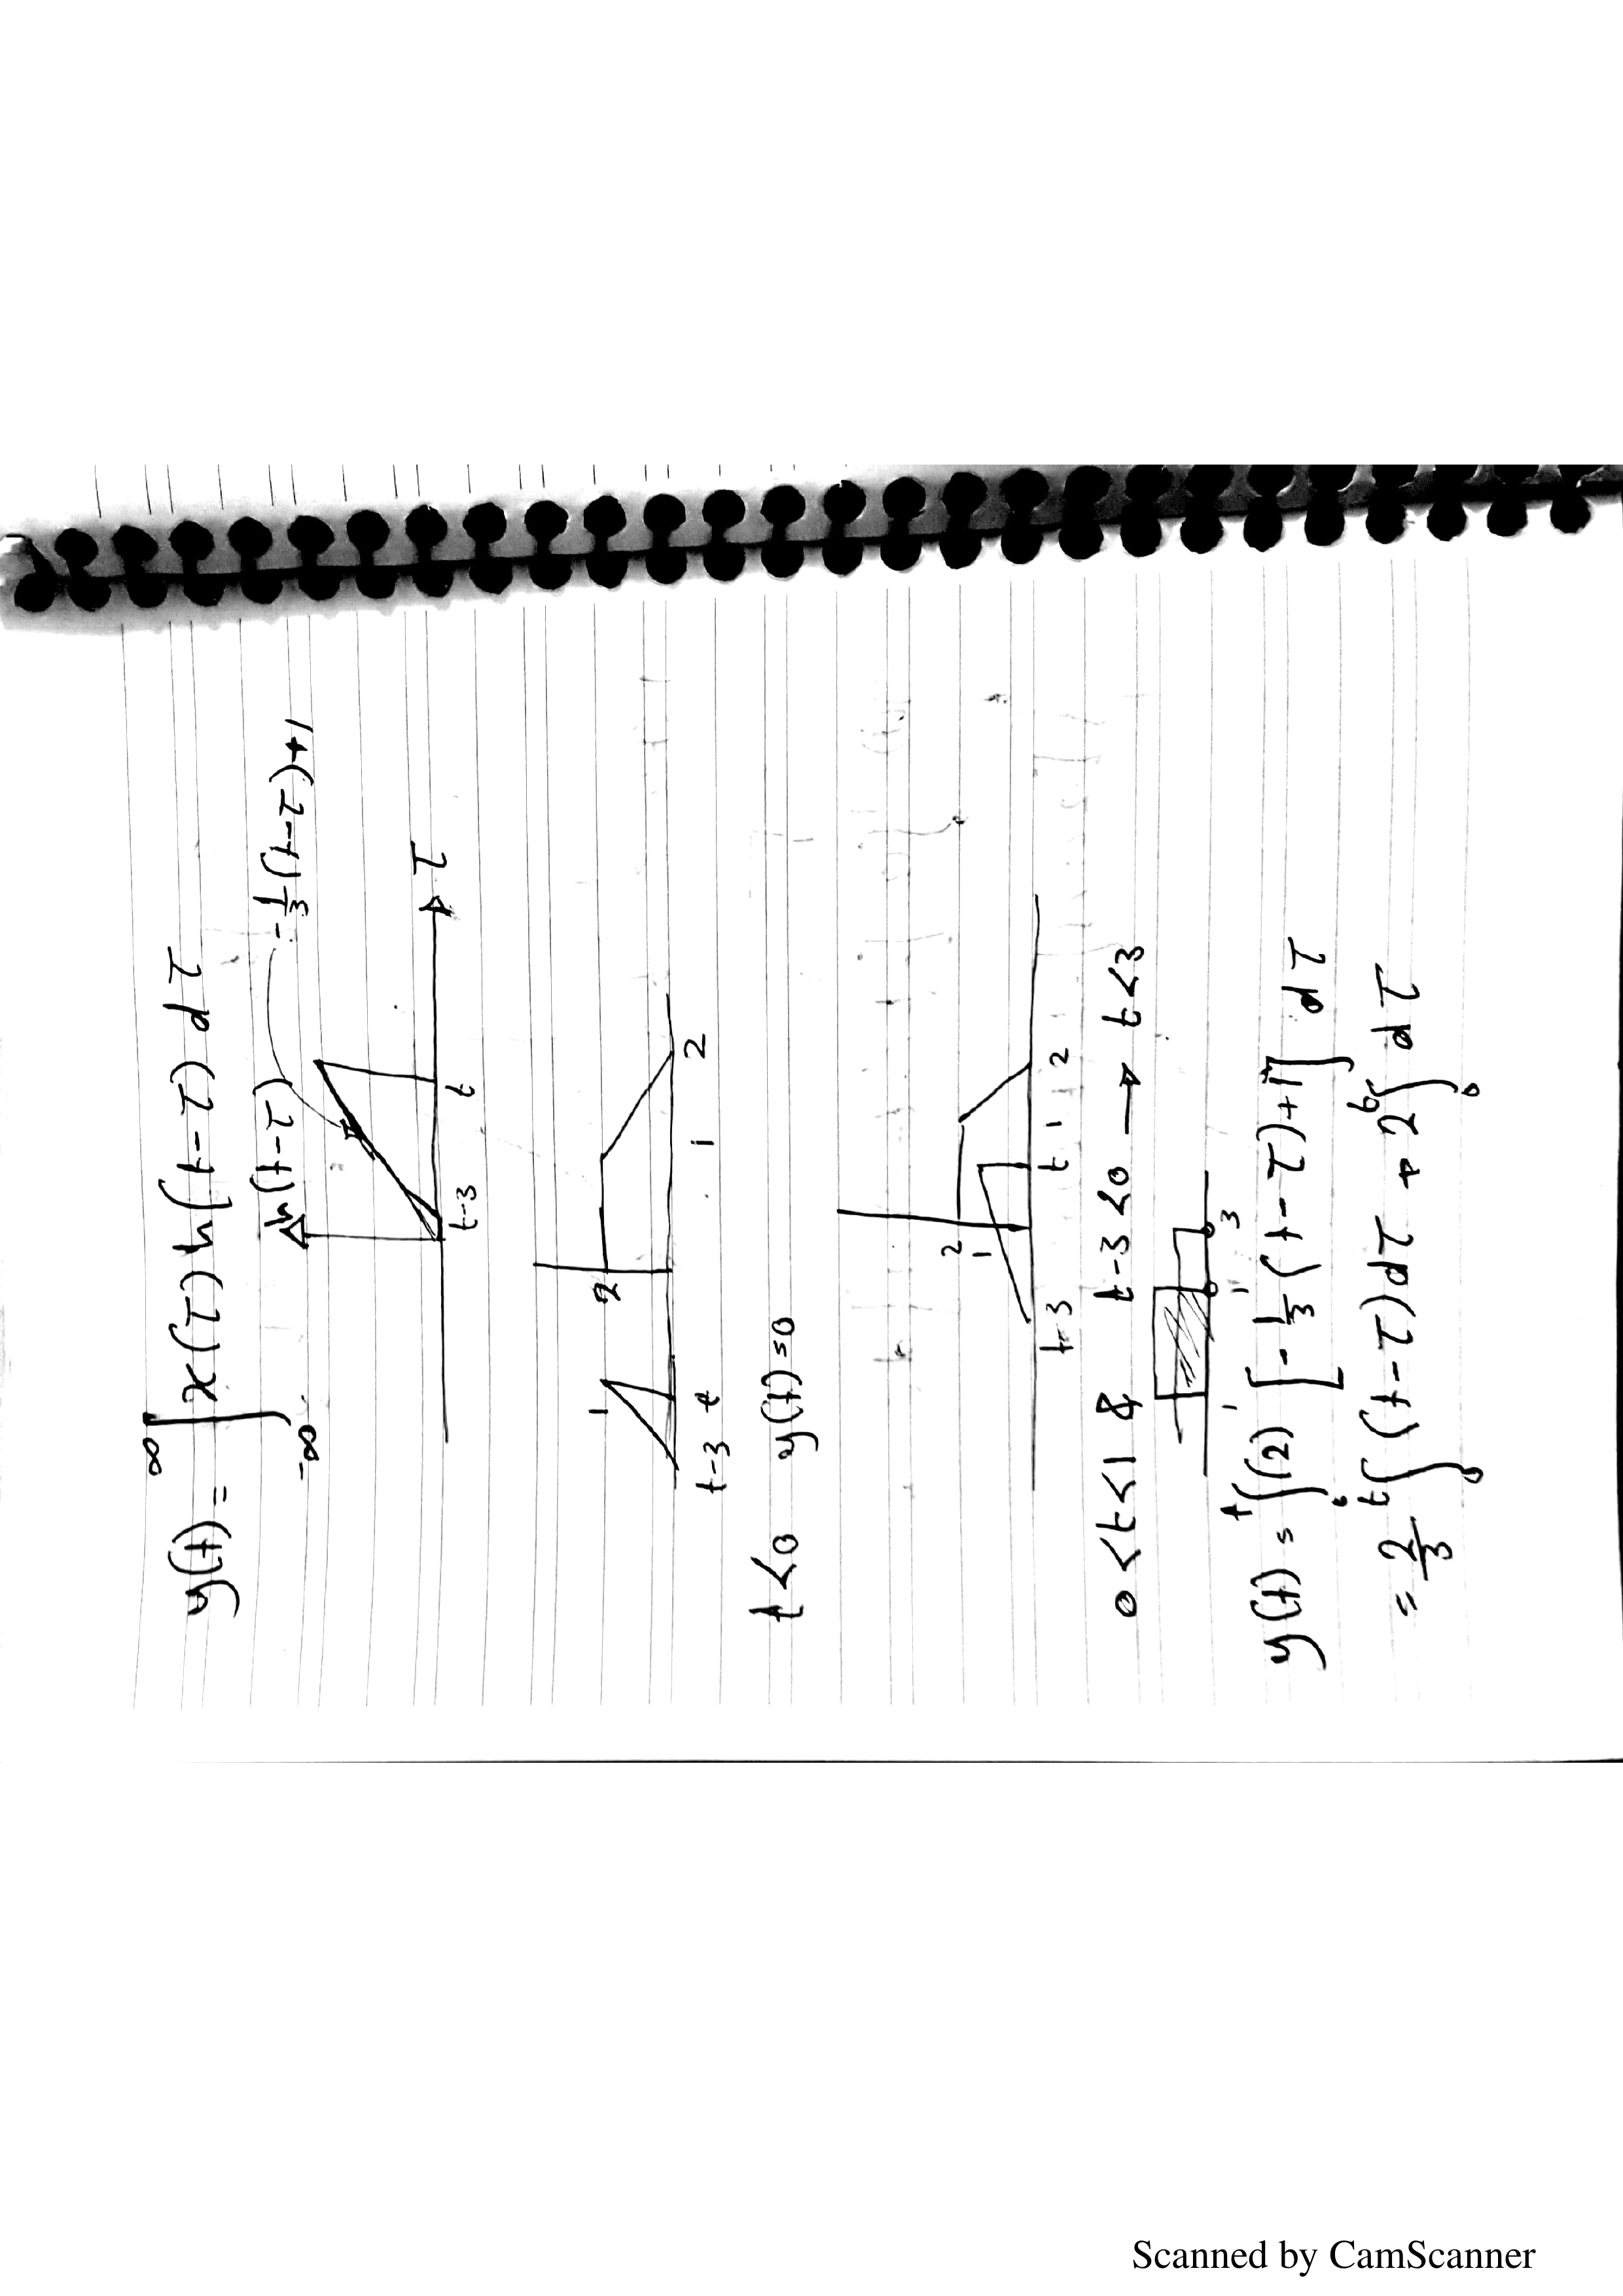 y(t) = ∫_{-∞}^{∞} x(τ) h(t-τ) dτ
h(t-τ)
-1/3 (t-τ)+1
t-3 t τ
1 2
t-3 t 1 2
t<0 y(t)=0
2
1
t-3 t 1 2
0<t<1 & t-3<0 → t<3
1 1 3
y(t) = ∫_0^t (2) [-1/3 (t-τ)+1] dτ
= 2/3 ∫_0^t (t-τ)dτ + 2∫_0^t dτ
Scanned by CamScanner